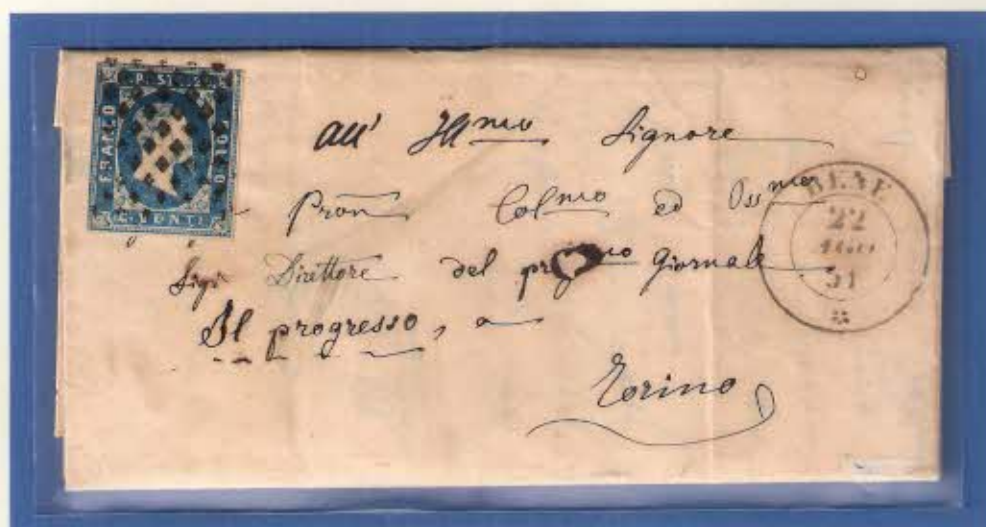 FRANCO
POSTE 20
BOLLO
C. VENTI
All' Ill.mo Signore
Pron Col.mo ed Oss.mo
Sigr Direttore del Giornale
Il progresso, a
Torino
BENE
22
51